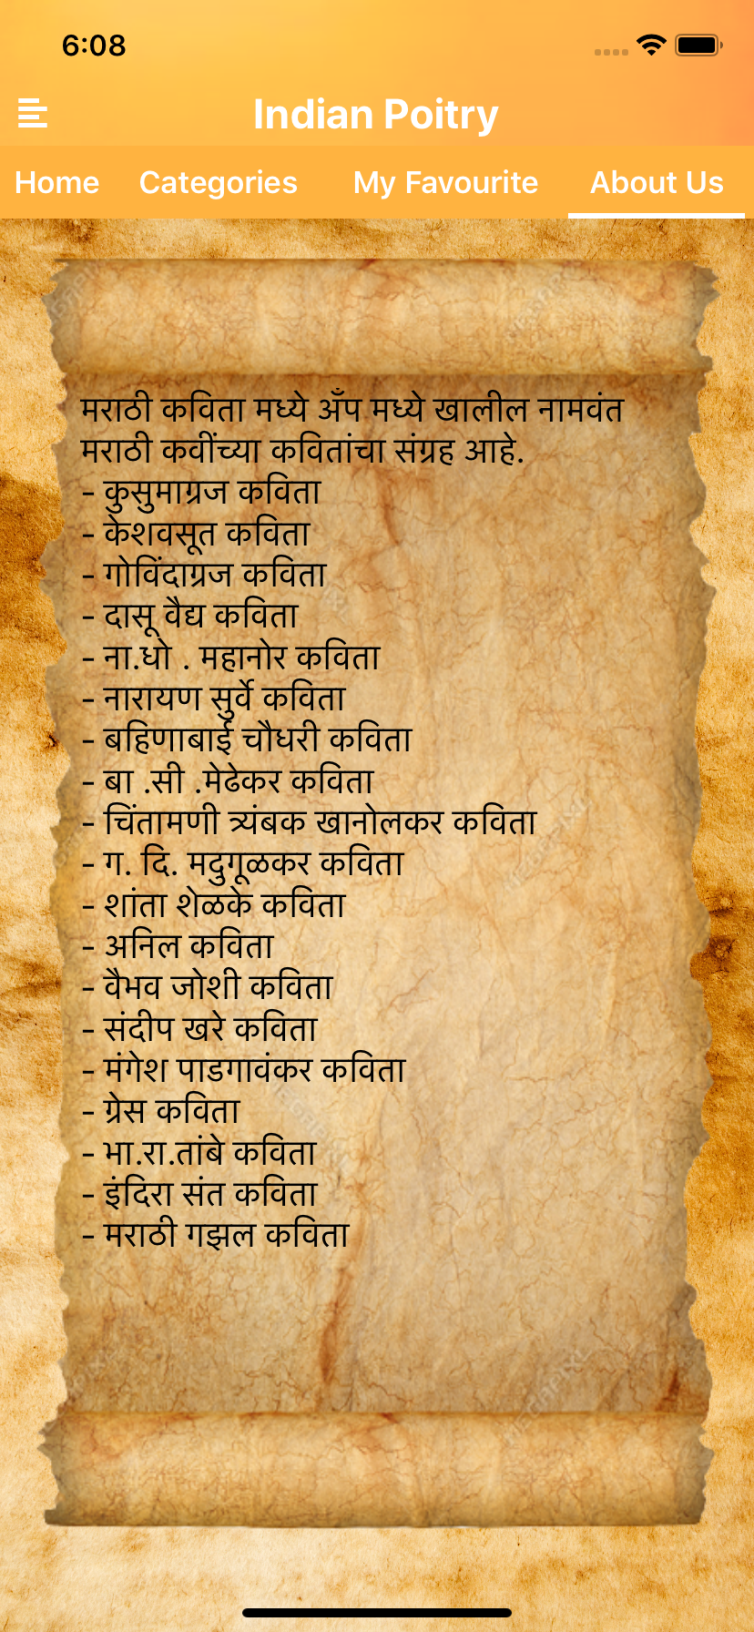 6:08
Indian Poitry
Home Categories My Favourite About Us
मराठी कविता मध्ये अँप मध्ये खालील नामवंत
मराठी कवींच्या कवितांचा संग्रह आहे.
- कुसुमाग्रज कविता
- केशवसूत कविता
- गोविंदाग्रज कविता
- दासू वैद्य कविता
- ना.धो . महानोर कविता
- नारायण सुर्वे कविता
- बहिणाबाई चौधरी कविता
- बा .सी .मेढेकर कविता
- चिंतामणी त्र्यंबक खानोलकर कविता
- ग. दि. मदुगूळकर कविता
- शांता शेळके कविता
- अनिल कविता
- वैभव जोशी कविता
- संदीप खरे कविता
- मंगेश पाडगावंकर कविता
- ग्रेस कविता
- भा.रा.तांबे कविता
- इंदिरा संत कविता
- मराठी गझल कविता